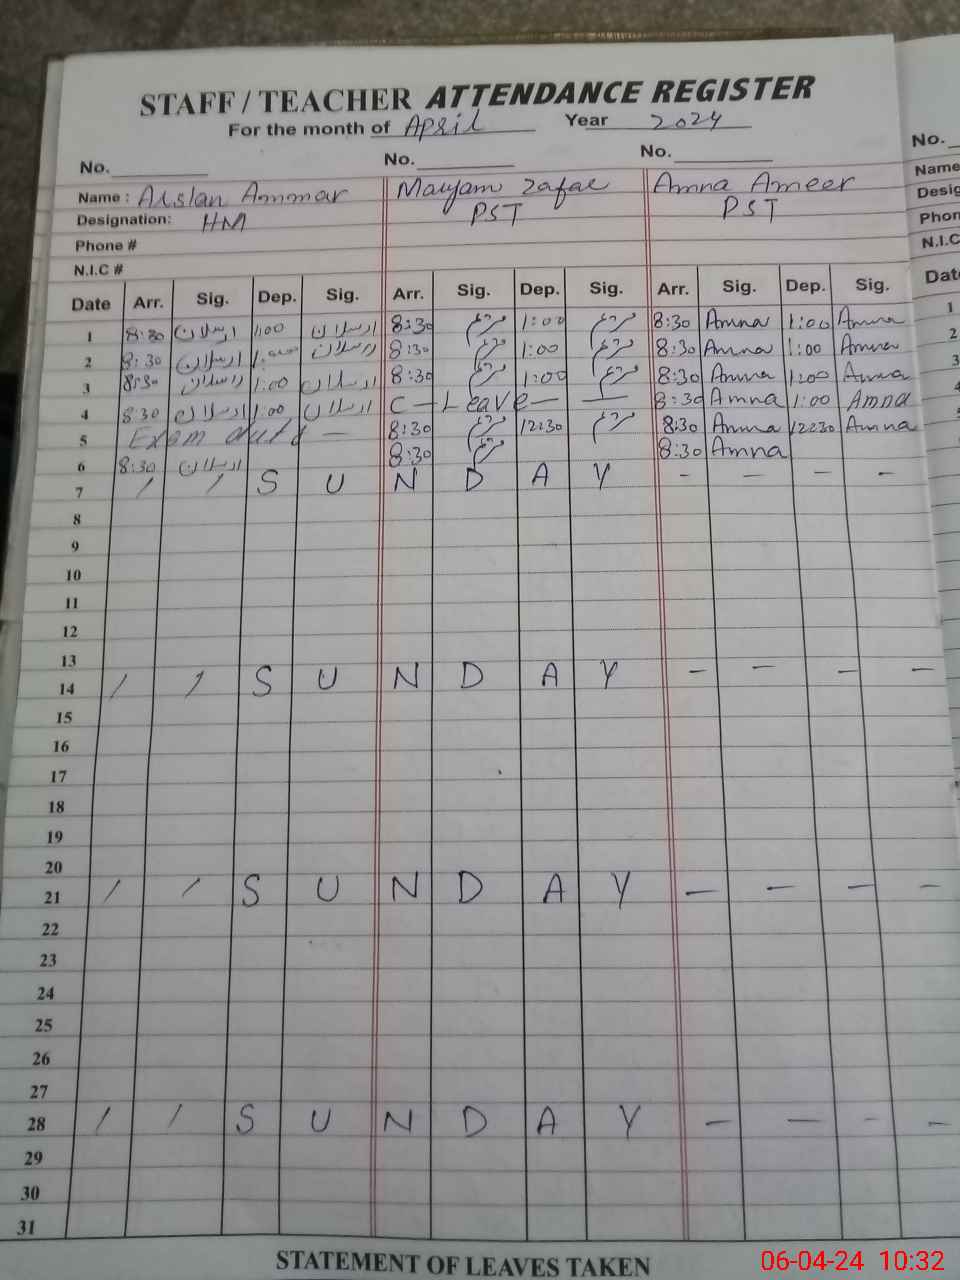 STAFF / TEACHER ATTENDANCE REGISTER
For the month of April Year 2024
No. No. No. No.
Name : Arslan Ammar Maryam Zafar Amna Ameer Name
Designation: HM PST PST Desig
Phone # Phon
N.I.C # N.I.C
Date Arr. Sig. Dep. Sig. Arr. Sig. Dep. Sig. Arr. Sig. Dep. Sig. Dat
1 8:30 ارسلان 1:00 ارسلان 8:30 مریم 1:00 مریم 8:30 Amna 1:00 Amna 1
2 8:30 ارسلان 1:00 ارسلان 8:30 مریم 1:00 مریم 8:30 Amna 1:00 Amna 2
3 8:30 ارسلان 1:00 ارسلان 8:30 مریم 1:00 مریم 8:30 Amna 1:00 Amna 3
4 8:30 ارسلان 1:00 ارسلان C - Leave - 8:30 Amna 1:00 Amna
5 Exam duty - 8:30 مریم 12:30 مریم 8:30 Amna 12:30 Amna
6 8:30 ارسلان 8:30 مریم 8:30 Amna
7 / / S U N D A Y - - - -
8
9
10
11
12
13
14 / / S U N D A Y - - - -
15
16
17
18
19
20
21 / / S U N D A Y - - - -
22
23
24
25
26
27
28 / / S U N D A Y - - - -
29
30
31
STATEMENT OF LEAVES TAKEN
06-04-24 10:32